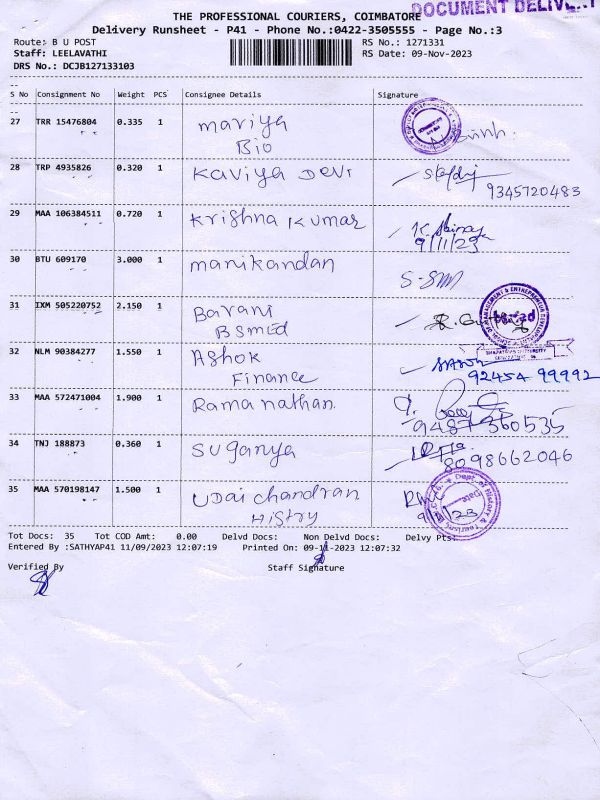 DOCUMENT DELIV
THE PROFESSIONAL COURIERS, COIMBATORE
Delivery Runsheet - P41 - Phone No.:0422-3505555 - Page No.:3
Route: B U POST RS No.: 1271331
Staff: LEELAVATHI RS Date: 09-Nov-2023
DRS No.: DCJB127133103
S No Consignment No Weight PCS Consignee Details Signature
27 TRR 15476804 0.335 1 mariya
Bio
28 TRP 4935826 0.320 1 Kaviya Devi
9345720483
29 MAA 106384511 0.720 1 Krishna Kumar
9/11/23
30 BTU 609170 3.000 1 manikandan
31 IXM 505220752 2.150 1 Barani
BSMED
32 NLM 90384277 1.550 1 Ashok
Finance 92454 99992
33 MAA 572471004 1.900 1 Rama nathan.
9487360535
34 TNJ 188873 0.360 1 Suganya
8098662046
35 MAA 570198147 1.500 1 Udai chandran
History
Tot Docs: 35 Tot COD Amt: 0.00 Delvd Docs: Non Delvd Docs: Delvy Pts:
Entered By :SATHYAP41 11/09/2023 12:07:19 Printed On: 09-11-2023 12:07:32
Verified By Staff Signature